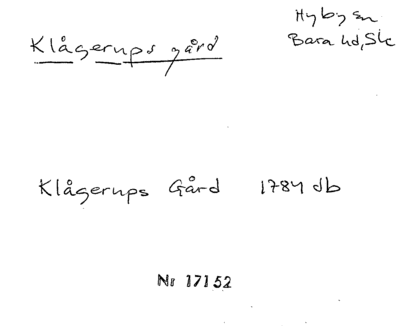 Klågerups gård
Hyby sn
Bara hd, Sk
Klågerups Gård 1784 db
Nr 17152